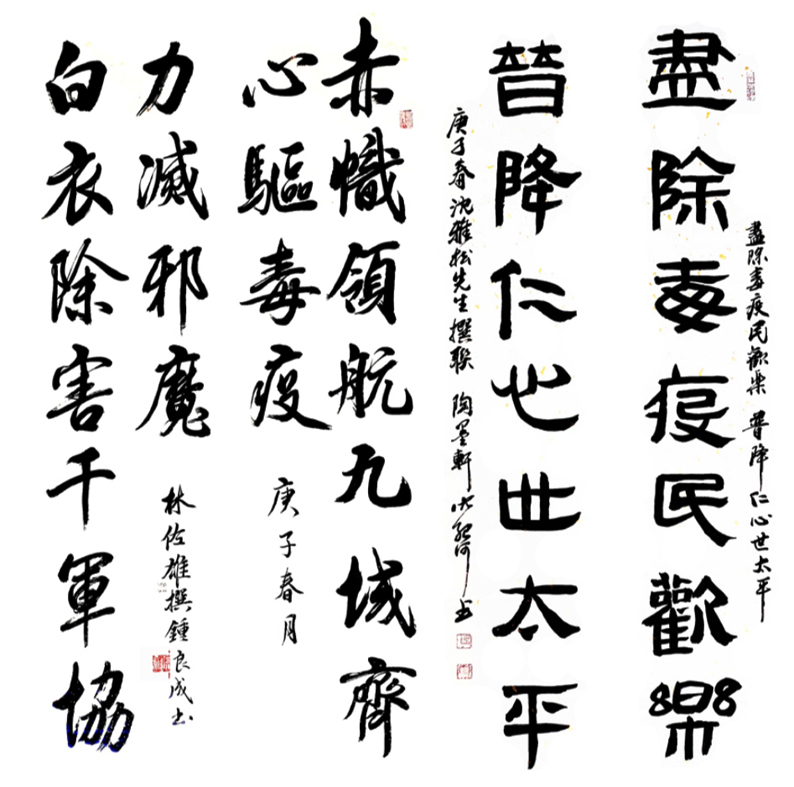 盡除毒疫民歡樂 普降仁心世太平
盡除毒疫民歡樂
普降仁心世太平
庚子春沈雅松先生撰聯 陶墨軒 书
赤幟領航九域齊
心驅毒疫
庚子春月
白衣除害千軍協
力滅邪魔
林佐雄撰鍾良成书